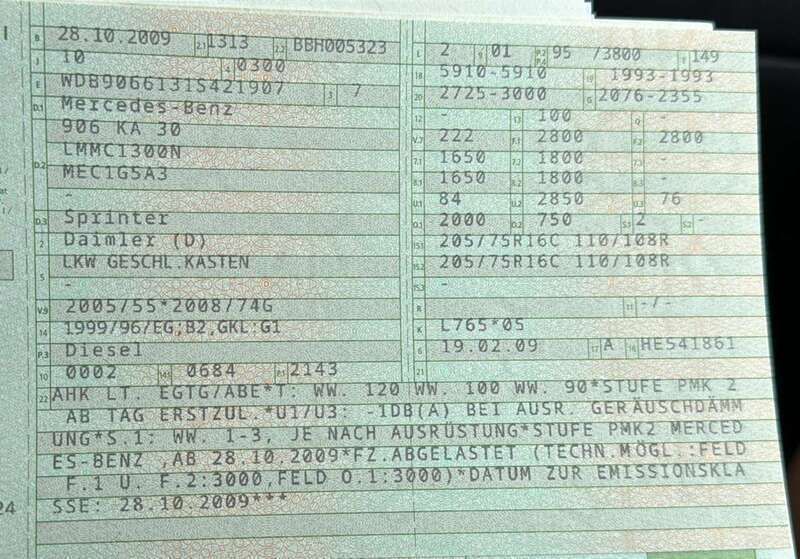 B 28.10.2009 2.1 1313 2.2 BBH005323 L 2 9 01 P.2 P.4 95 /3800 T 149
J 10 4 0300 18 5910-5910 19 1993-1993
E WDB9066131S421907 3 7 20 2725-3000 G 2076-2355
D.1 Mercedes-Benz 12 - 13 100 Q -
906 KA 30 V.7 222 F.1 2800 F.2 2800
D.2 LMMC1300N 7.1 1650 7.2 1800 7.3 -
MEC1G5A3 8.1 1650 8.2 1800 8.3 -
- U.1 84 U.2 2850 U.3 76
D.3 Sprinter O.1 2000 O.2 750 S.1 2 S.2 -
2 Daimler (D) 15.1 205/75R16C 110/108R
5 LKW GESCHL.KASTEN 15.2 205/75R16C 110/108R
- 15.3 -
V.9 2005/55*2008/74G R 11 -/-
14 1999/96/EG;B2,GKL:G1 K L765*05
P.3 Diesel 6 19.02.09 17 A 16 HE541861
10 0002 14.1 0684 P.1 2143 21
22 AHK LT. EGTG/ABE*T: WW. 120 WW. 100 WW. 90*STUFE PMK 2
AB TAG ERSTZUL.*U1/U3: -1DB(A) BEI AUSR. GERÄUSCHDÄMM
UNG*S.1: WW. 1-3, JE NACH AUSRÜSTUNG*STUFE PMK2 MERCED
ES-BENZ ,AB 28.10.2009*FZ.ABGELASTET (TECHN.MÖGL.:FELD
F.1 U. F.2:3000,FELD O.1:3000)*DATUM ZUR EMISSIONSKLA
24 SSE: 28.10.2009***